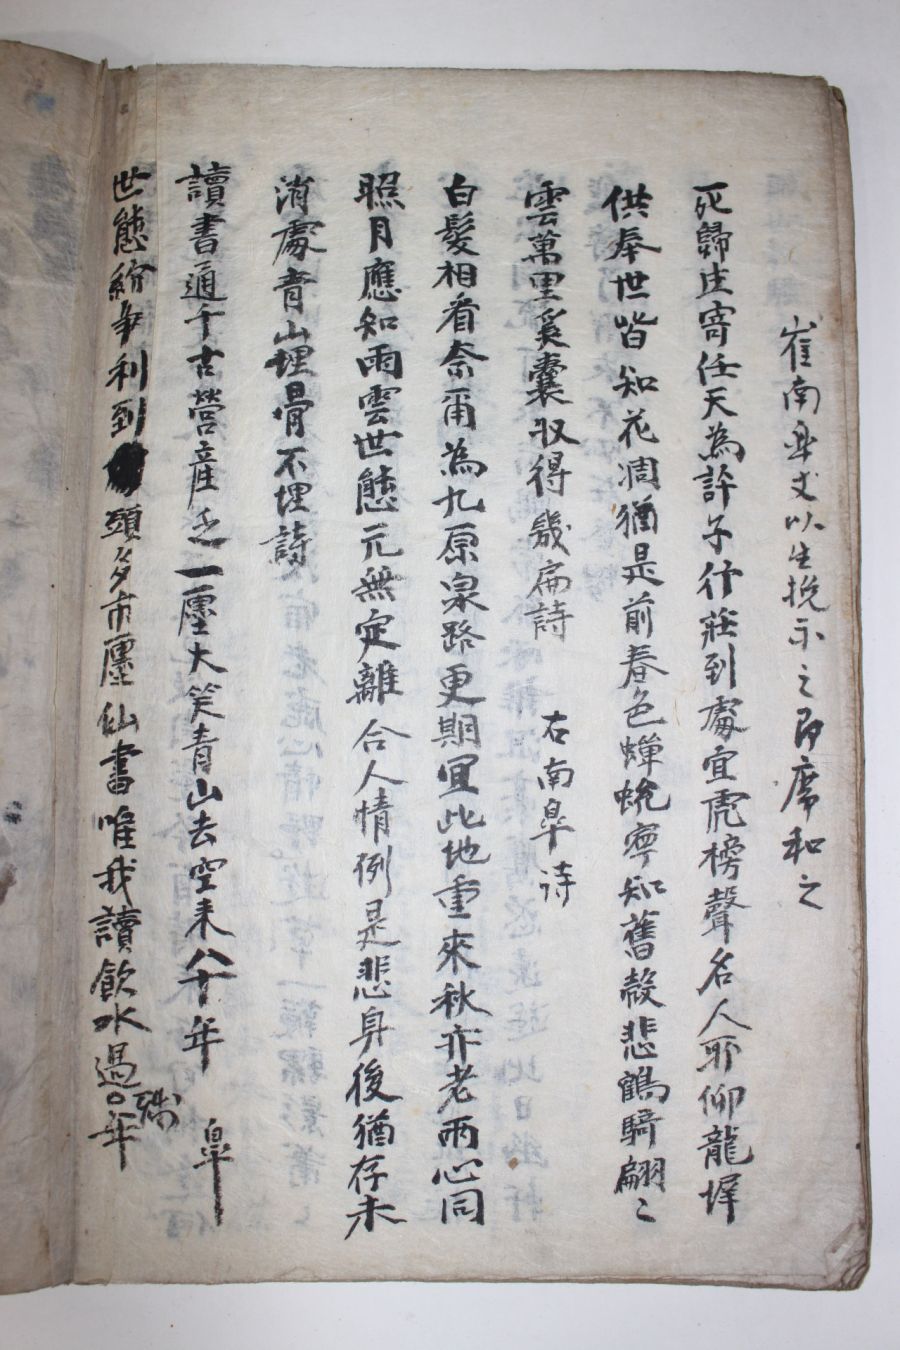 崔南皐丈以生挽示之即席和之
死歸生寄任天為許子行莊到處宜虎榜聲名人所仰龍墀
供奉世皆知花凋猶是前春色蟬蛻寧知舊殼悲鶴騎翩〻
雲萬里奚囊収得幾扁詩　右南皐詩
白髮相看奈爾為九原泉路更期冝此地重來秋亦老兩心同
照月應知雨雲世態元無定離合人情例是悲身後猶存未
消處青山埋骨不埋詩
讀書通千古營産乏一廛大笑青山去空未八十年　皐
世態紛爭利到頭多市廛仙書唯我讀飮水過年